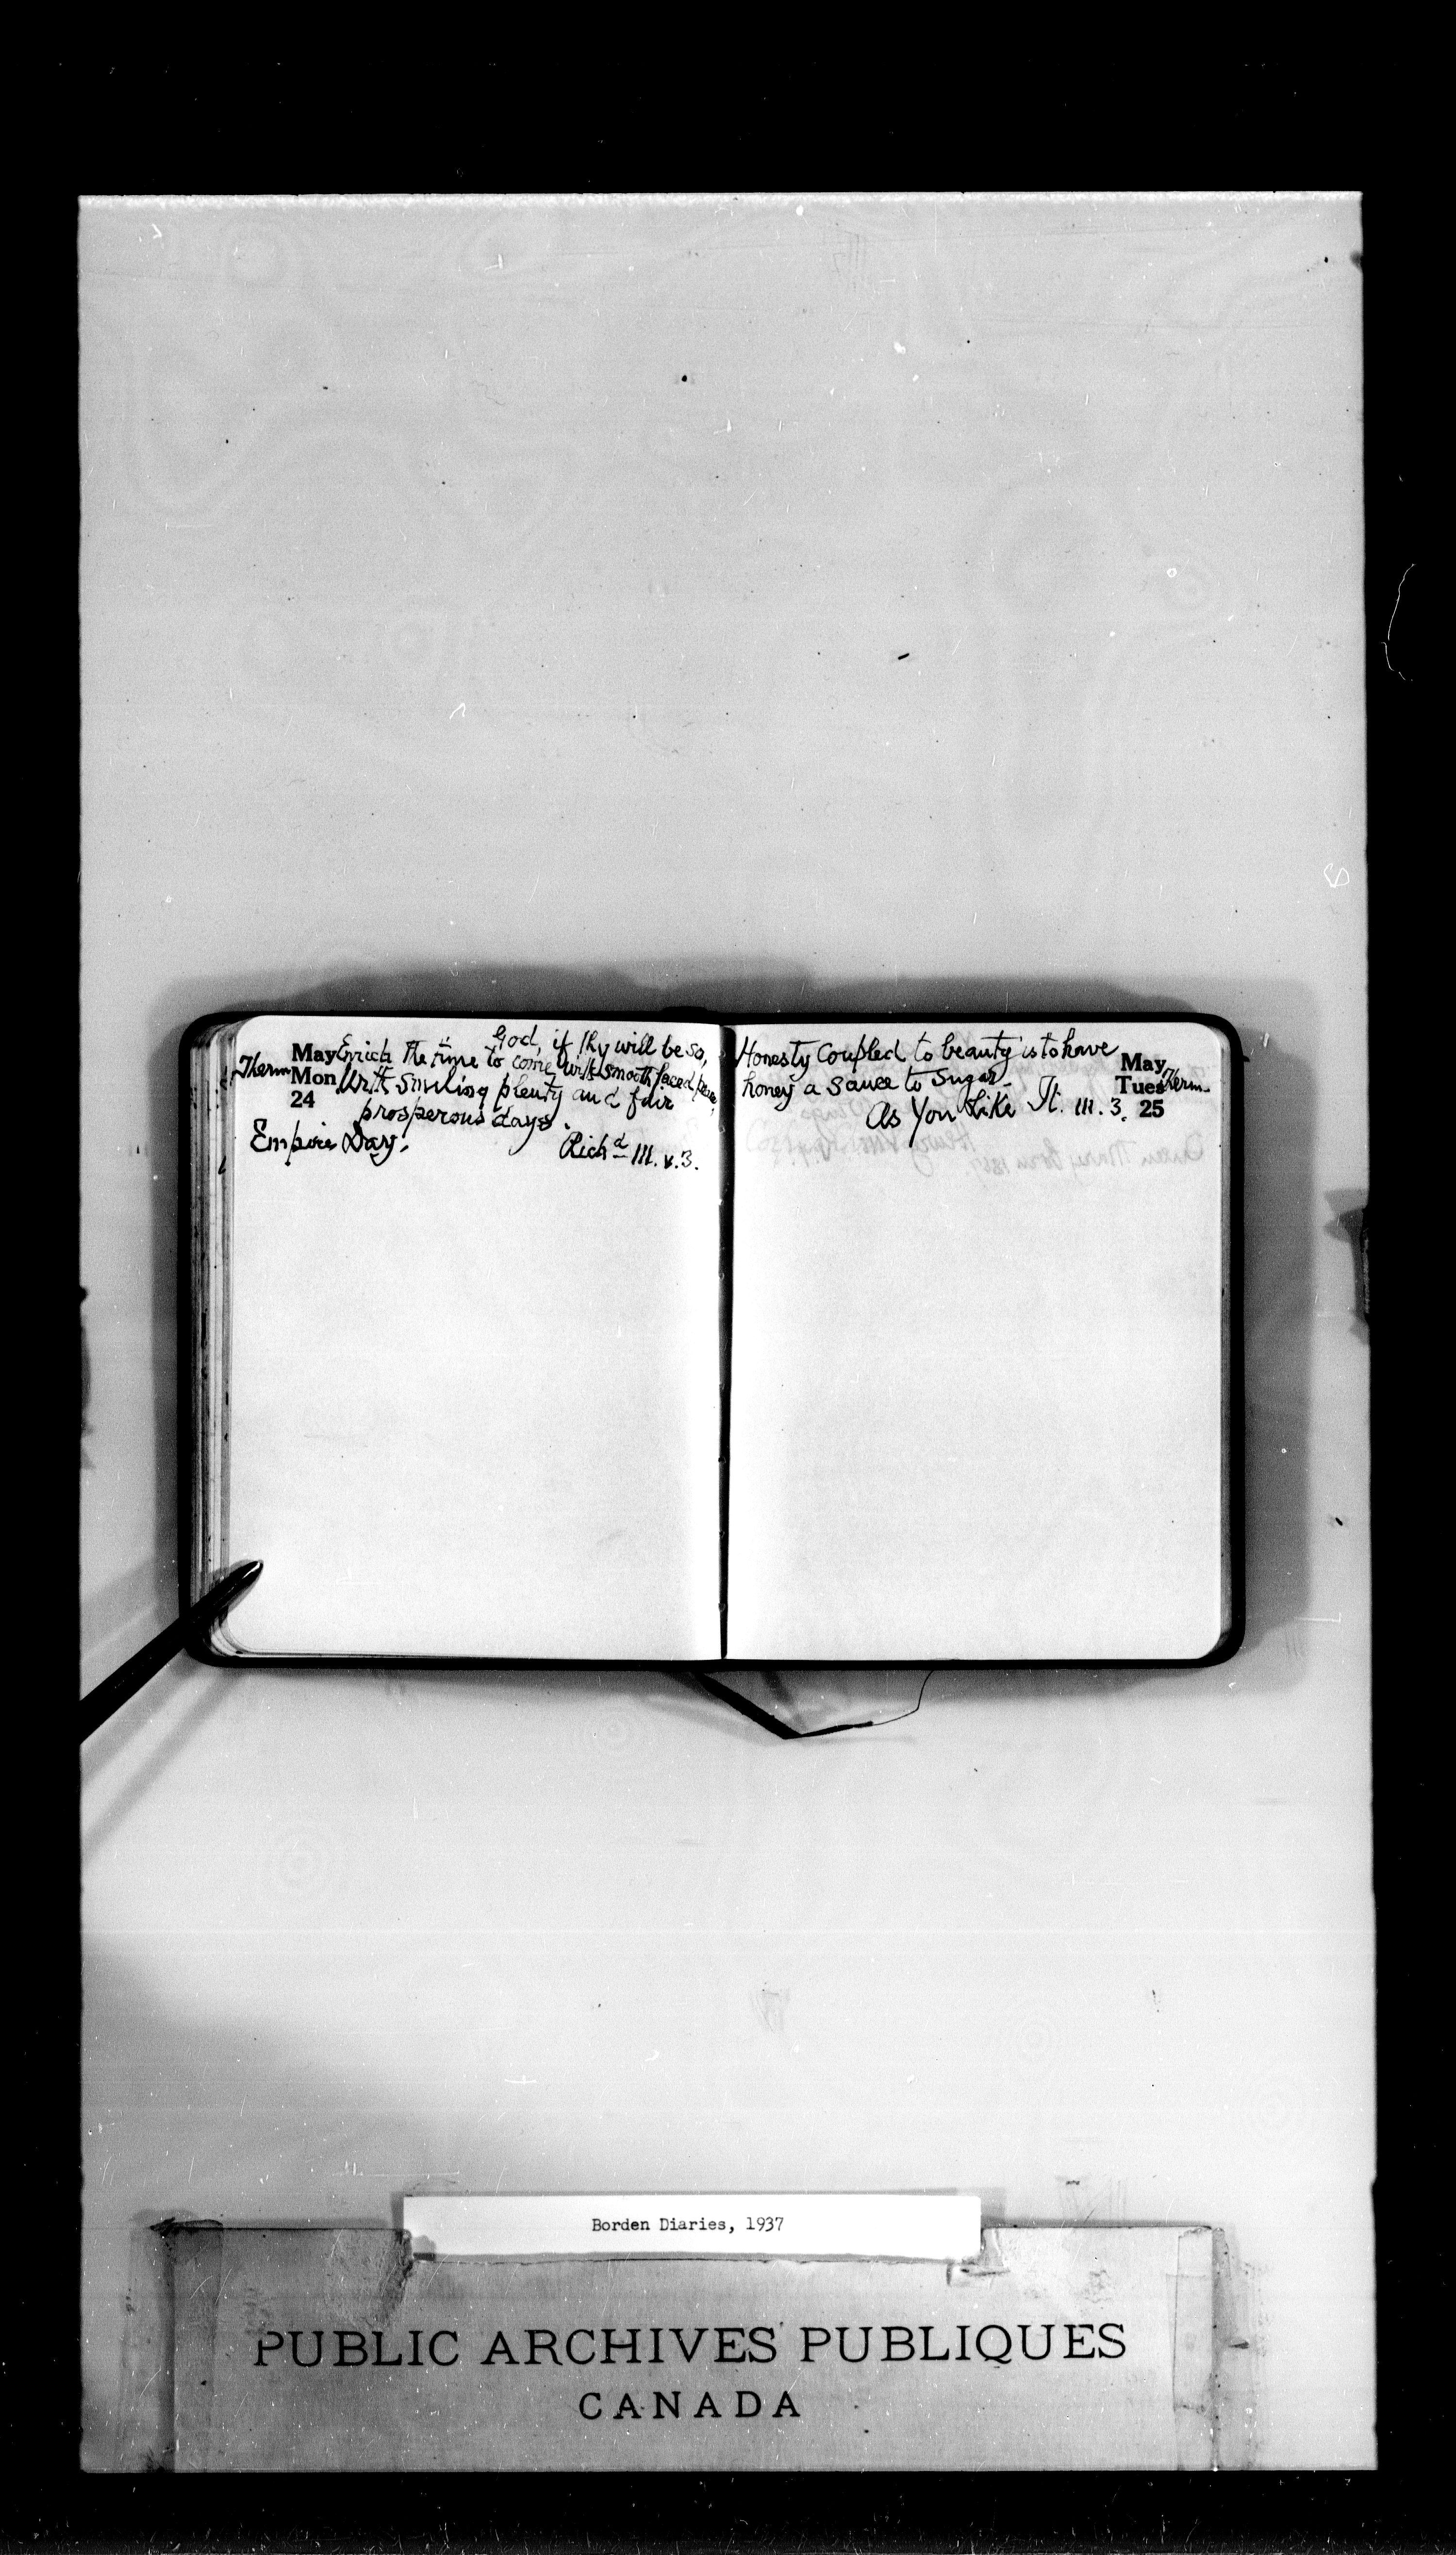 God, if thy will be so,
May Enrich the time to come with smooth faced peace,
Therm Mon With smiling plenty and fair
24 prosperous days.
Empire Day. Richd III. v. 3.
Honesty coupled to beauty is to have May
honey a sauce to sugar. Tues Therm
As You Like It. III. 3. 25
Queen Mary born 1867
Borden Diaries, 1937
PUBLIC ARCHIVES PUBLIQUES
CANADA